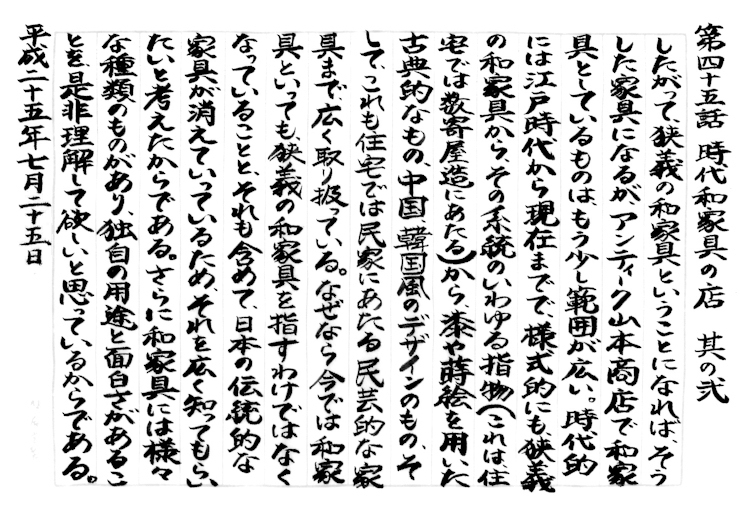 第四十五話 時代和家具の店 其の弐
したがって、狭義の和家具ということになれば、そう
した家具になるが、アンティーク山本商店で和家
具としているものは、もう少し範囲が広い。時代的
には江戸時代から現在までで、様式的にも狭義
の和家具から、その系統のいわゆる指物(これは、住
宅では数寄屋造にあたる)から、漆や蒔絵を用いた
古典的なもの、中国韓国風のデザインのもの、そ
して、これも住宅では民家にあたる民芸的な家
具まで広く取り扱っている。なぜなら今では和家
具といっても、狭義の和家具を指すわけではなく
なっていることと、それも含めて、日本の伝統的な
家具が消えていっているため、それを広く知ってもらい
たいと考えたからである。さらに和家具には様々
な種類のものがあり、独自の用途と面白さがあるこ
とを、是非理解して欲しいと思っているからである。
平成二十五年七月二十五日